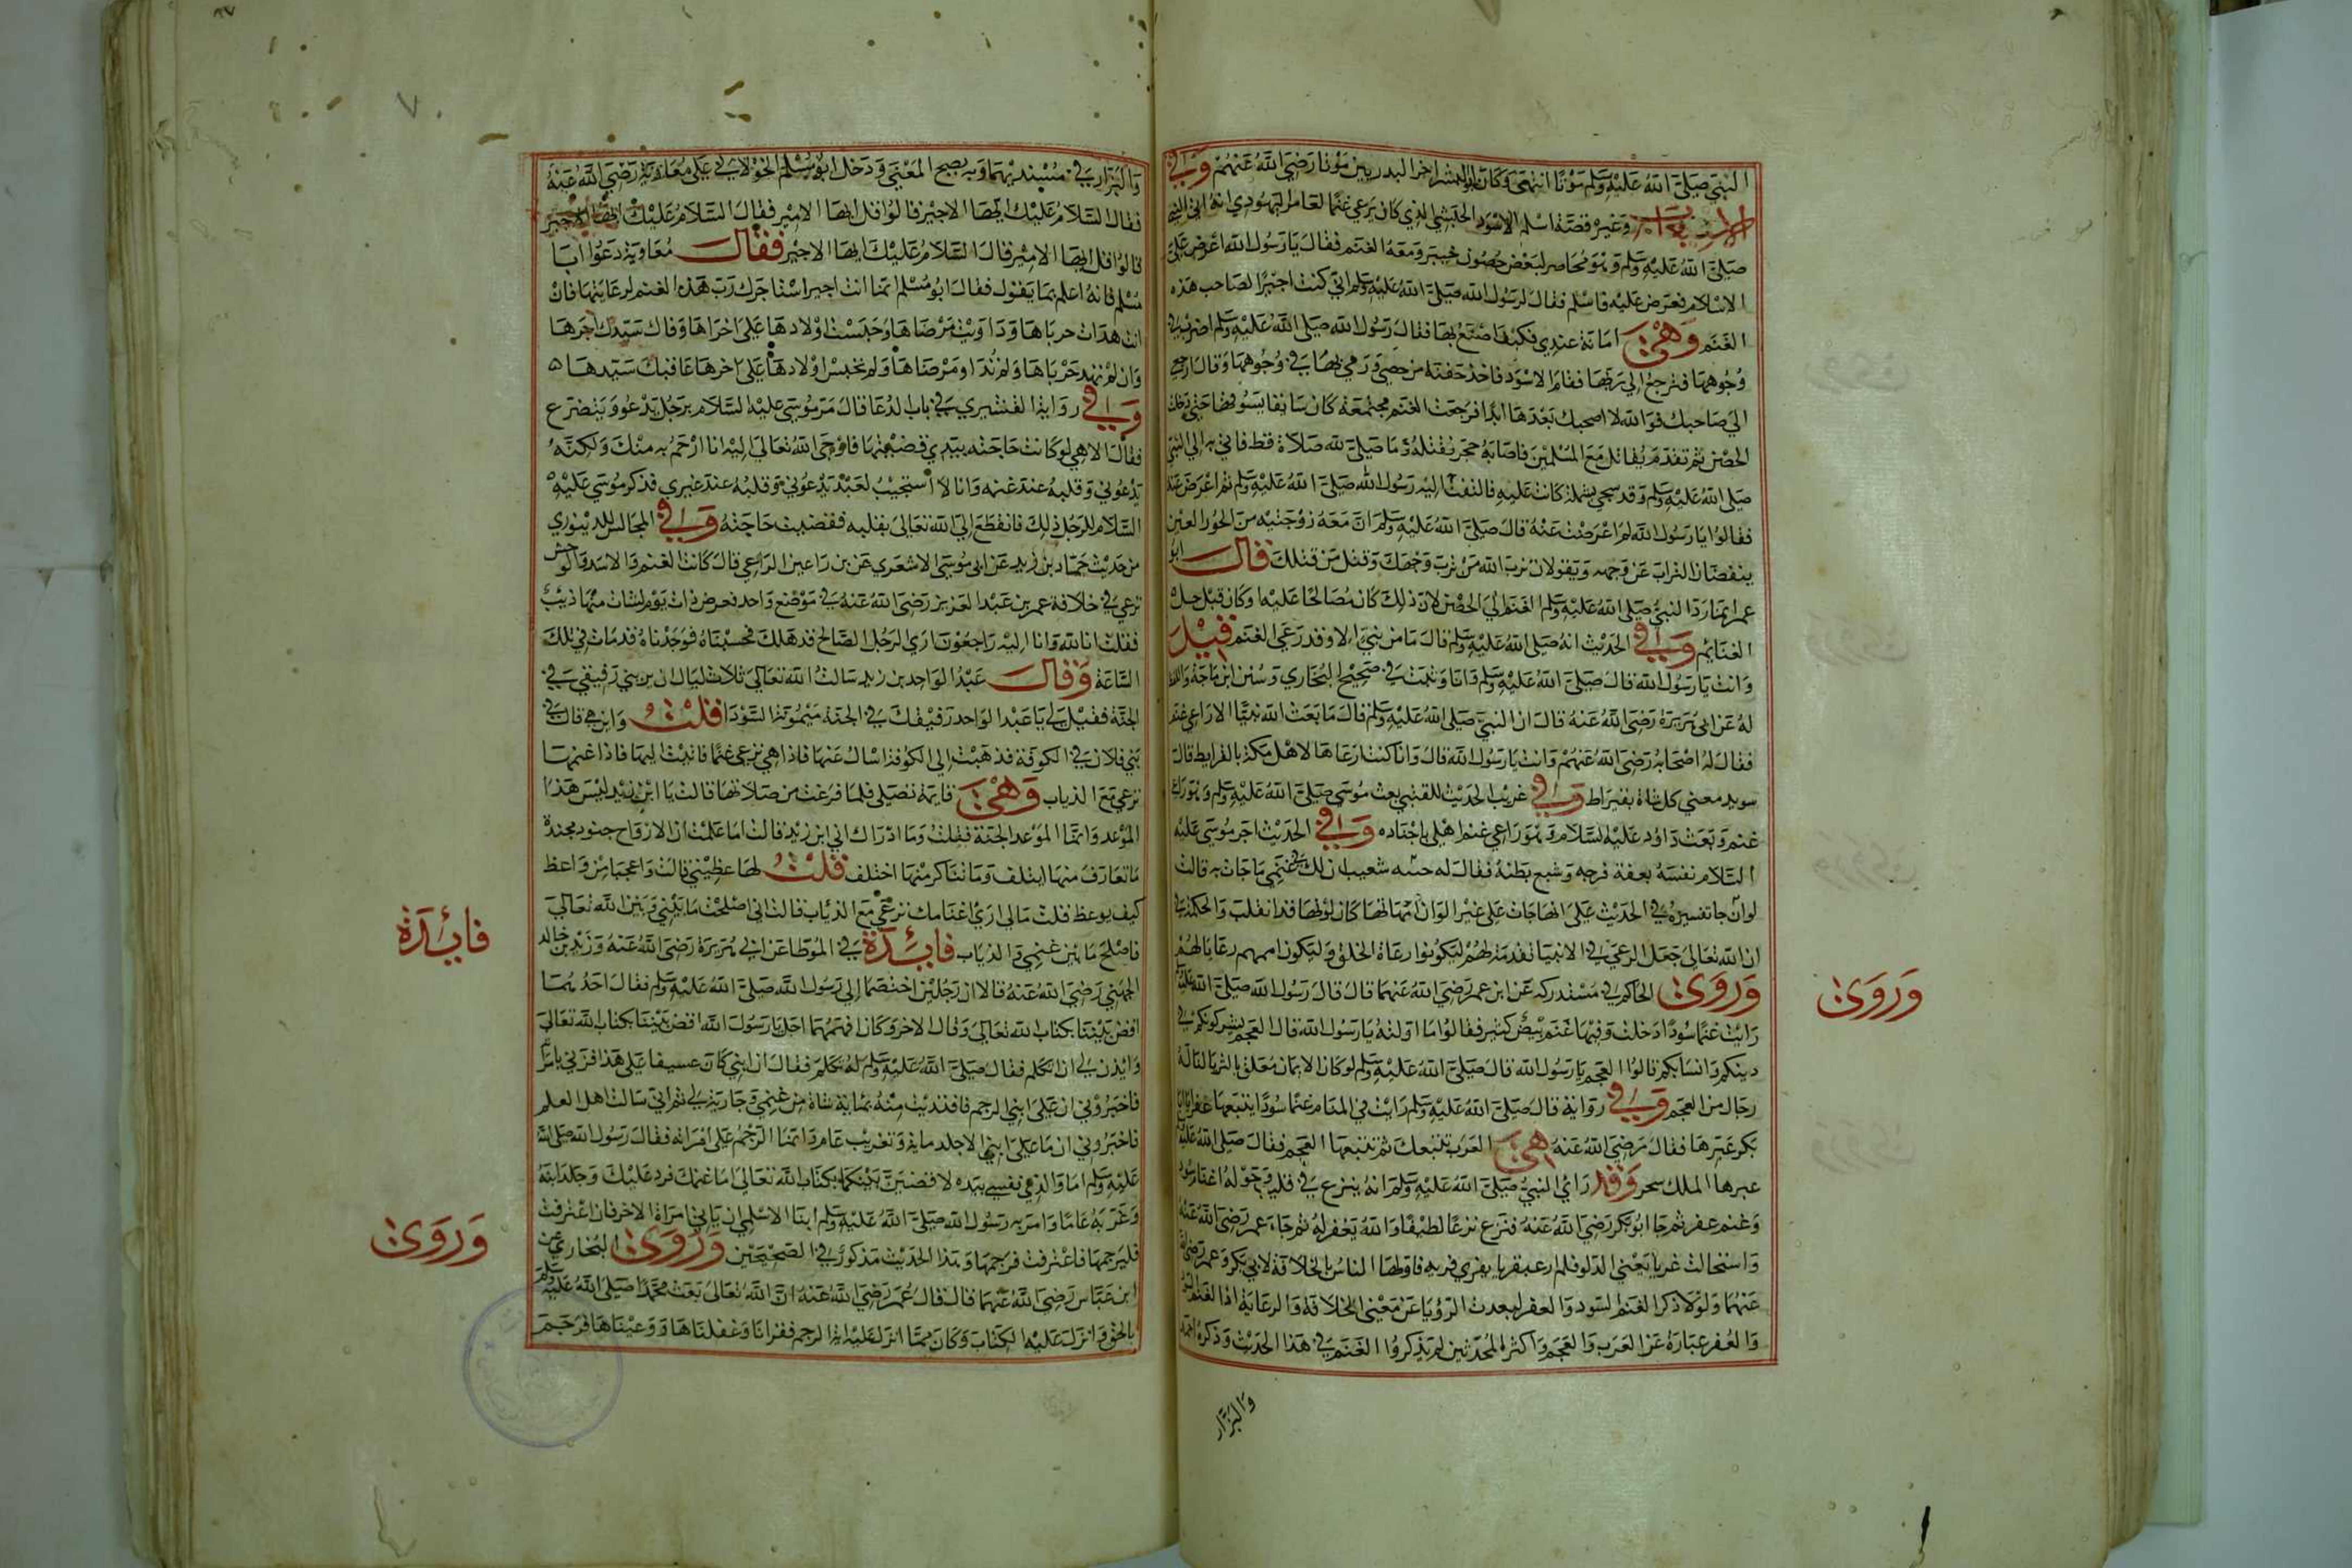 النبي صلى الله عليه وسلم موتا انتهى وكان ابو اليسر اخر البدريين موتا رضي الله عنهم وفي
وغيره قصة اسلم الاسود الحبشي الذي كان يرعى غنما لعامل اليهودي انه اتى النبي
صلى الله عليه وسلم وهو محاصر لبعض حصون خيبر ومعه الغنم فقال يا رسول الله اعرض علي
الاسلام فعرض عليه فاسلم فقال لرسول الله صلى الله عليه وسلم اني كنت اجيرا لصاحب هذه
الغنم وهي امانة عندي فكيف اصنع بها فقال رسول الله صلى الله عليه وسلم اضرب في
وجوهها فترجع الى ربها فقام الاسود فاخذ حفنة من حصى ورمى بها في وجوهها وقال ارجعي
الى صاحبك فوالله لا اصحبك بعدها ابدا فرجعت الغنم مجتمعة كان سائقا يسوقها حتى دخلت
الحصن ثم تقدم يقاتل مع المسلمين فاصابه حجر فقتله وما صلى لله صلاة قط فاتي به الى النبي
صلى الله عليه وسلم وقد سجي بشملة كانت عليه فالتفت اليه رسول الله صلى الله عليه وسلم ثم اعرض عنه
فقالوا يا رسول الله لم اعرضت عنه قال صلى الله عليه وسلم ان معه زوجتيه من الحور العين
ينفضان التراب عن وجهه ويقولان ترب الله من ترب وجهك وقتل من قتلك قال ابو
عمر انما رد النبي صلى الله عليه وسلم الغنم الى الحصن لان ذلك كان مصالحا عليه او كان قبل حل
الغنايم وفي الحديث انه صلى الله عليه وسلم قال ما من نبي الا وقد رعى الغنم قيل
وانت يا رسول الله قال صلى الله عليه وسلم وانا وثبت في صحيح البخاري وسنن ابن ماجة واللفظ
له عن ابي هريرة رضي الله عنه قال ان النبي صلى الله عليه وسلم قال ما بعث الله نبيا الا راعي غنم
فقال له اصحابه رضي الله عنهم وانت يا رسول الله قال وانا كنت ارعاها لاهل مكة بالقراريط قال
سويد معنى كل شاة بقيراط وفي غريب الحديث للقتبي بعث موسى صلى الله عليه وسلم وهو راعي
غنم وبعث داود عليه السلام وهو راعي غنم اهلي باجياد وفي الحديث اجر موسى عليه
السلام نفسه بعفة فرجه وشبع بطنه فقال له ختنه شعيب ان لك في غنمي ما جات به قالب
لون جا تفسيره في الحديث على انها جات على غير الوان امهاتها كان لونها قد انقلب والحكمة في
ان الله تعالى جعل الرعي في الانبيا تقدمة لهم ليكونوا رعاة الخلق ولتكون اممهم رعايا لهم
وروى الحاكم في مستدركه عن ابن عمر رضي الله عنهما قال قال رسول الله صلى الله عليه
رايت غنما سودا دخلت وفيها غنم بيض كثير فقالوا ما اولته يا رسول الله قال العجم يشركونكم في
دينكم وانسابكم قالوا العجم يا رسول الله قال صلى الله عليه وسلم لو كان الايمان معلق بالثريا لناله
رجال من العجم وفي رواية قال صلى الله عليه وسلم رايت في المنام غنما سودا يتبعها غفر يا ابا
بكر عبرها فقال رضي الله عنه هي العرب تتبعك ثم تتبعها العجم فقال صلى الله عليه
عبرها الملك سحر وقد رأى النبي صلى الله عليه وسلم انه ينزع في قليب وحوله اغنام سود
وغنم عفر ثم جا ابو بكر رضي الله عنه فنزع نزعا لطيفا والله يغفر له ثم جاء عمر رضي الله عنه
واستحالت غربا يعني الدلو فلم ار عبقريا يفري فريه فاولها الناس بالخلافة لابي بكر وعمر رضي الله
عنهما ولولا ذكر الغنم السود والعفر لبعدت الرؤيا عن معنى الخلافة والرعاية اذ الغنم السود
والعفر عبارة عن العرب والعجم واكثر المحدثين لم يذكروا الغنم في هذا الحديث وذكره احمد
والبزار
وروى
والبزار في مسنديهما وبه يصح المعنى ودخل ابو مسلم الخولاني على معاوية رضي الله عنه
فقال السلام عليك ايها الاجير فقالوا قل ايها الامير فقال السلام عليك ايها الاجير
قالوا قل ايها الامير قال السلام عليك ايها الاجير فقال معاوية دعوا ابا
مسلم فانه اعلم بما يقول فقال ابو مسلم انما انت اجير استاجرك رب هذه الغنم لرعايتها فان
انت هدات جرباها وداويت مرضاها وحبست اولادها على اخراها وفاك سيدك اجرها
وان لم تهد جرباها ولم تداو مرضاها ولم تحبس اولادها على اخرها عاقبك سيدها
وفي رواية القشيري في باب الدعا قال مر موسى عليه السلام برجل يدعو ويتضرع
فقال الاهي لو كانت حاجته بيدي قضيتها فاوحى الله تعالى اليه انا ارحم به منك ولكنه
يدعوني وقلبه عند غنمه وانا لا استجيب لعبد يدعوني وقلبه عند غيري فذكر موسى عليه
السلام للرجل ذلك فانقطع الى الله تعالى بقلبه فقضيت حاجته وفي المجالس للدينوري
من حديث حماد بن زيد عن ابي موسى الاشعري عن بن راعين الراعي قال كانت الغنم والاسد والوحش
ترعى في خلافة عمر بن عبد العزيز رضي الله عنه في موضع واحد فعرض ذات يوم لشاة منها ذيب
فقلت انا لله وانا اليه راجعون ارى الرجل الصالح قد هلك فحسبناه فوجدناه قد مات في تلك
الساعة وقال عبد الواحد بن زيد سالت الله تعالى ثلاث ليال ان يريني رفيقي في
الجنة فقيل لي يا عبد الواحد رفيقك في الجنة ميمونة السودا قلت واين هي قال في
بني فلان في الكوفة فذهبت الى الكوفة اسال عنها فاذا هي ترعى غنما فاتيت اليها فاذا غنمها
ترعى مع الذياب وهي قايمة تصلي فلما فرغت من صلاتها قالت يا ابن زيد ليس هذا
الموعد وانما الموعد الجنة فقلت وما ادراك اني ابن زيد قالت اما علمت ان الارواح جنود مجندة
ما تعارف منها ايتلف وما تناكر منها اختلف قلت لها عظيني قالت واعجبا من واعظ
كيف يوعظ قلت ما لي ارى اغنامك ترعى مع الذياب قالت اني اصلحت ما بيني وبين الله تعالى
فاصلح ما بين غنمي والذياب فائدة في الموطا عن ابي هريرة رضي الله عنه وزيد بن خالد
الجهني رضي الله عنه قالا ان رجلين اختصما الى رسول الله صلى الله عليه وسلم فقال احدهما
اقض بيننا بكتاب الله تعالى وقال الاخر وكان افهمهما اجل يا رسول الله اقض بيننا بكتاب الله تعالى
وايذن لي ان اتكلم فقال صلى الله عليه وسلم له تكلم فقال ان ابني كان عسيفا على هذا فزنى بامراته
فاخبروني ان على ابني الرجم فافتديت منه بماية شاة من غنمي وجارية لي ثم اني سالت اهل العلم
فاخبروني ان ما على ابني الا جلد ماية وتغريب عام وانما الرجم على امراته فقال رسول الله صلى الله
عليه وسلم اما والذي نفسي بيده لاقضين بينكما بكتاب الله تعالى اما غنمك فرد عليك وجلد ابنه
وغربه عاما وامر به رسول الله صلى الله عليه وسلم ان ياتي امراة الاخر فان اعترفت
فليرجمها فاعترفت فرجمها وهذا الحديث مذكور في الصحيحين وروى البخاري عن
ابن عباس رضي الله عنهما قال قال عمر رضي الله عنه ان الله تعالى بعث محمدا صلى الله عليه وسلم
بالحق وانزل عليه الكتاب وكان مما انزل عليه اية الرجم فقرانا وعقلناها ووعيناها فرجم
فائدة
وروى